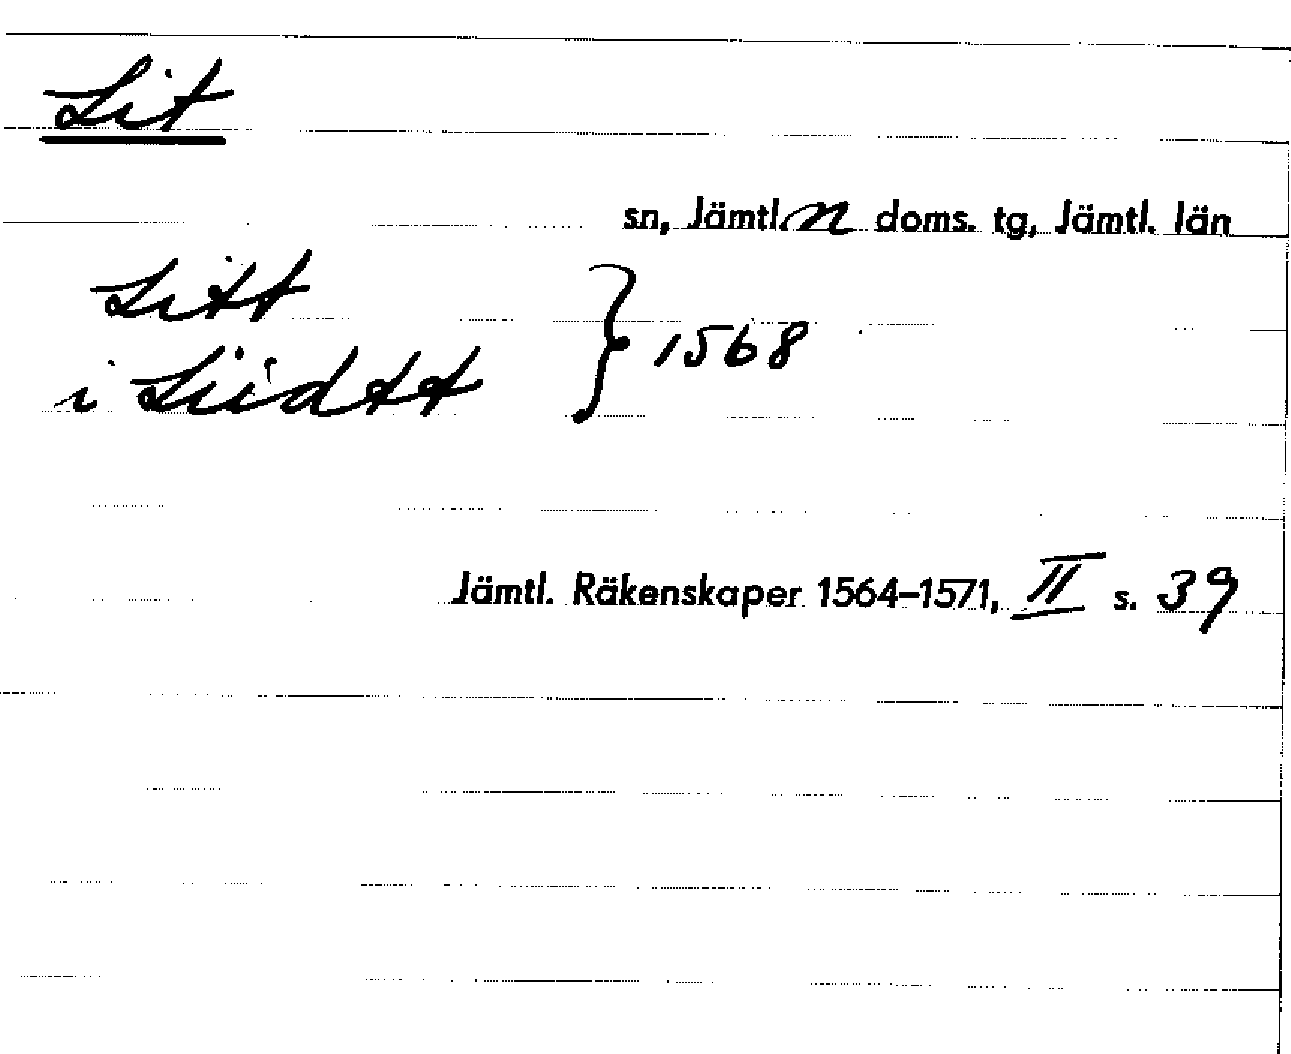 Lit
sn, Jämtl. n doms. tg, Jämtl. län
Litt
i Liidtt } 1568
Jämtl. Räkenskaper 1564–1571, II s. 39